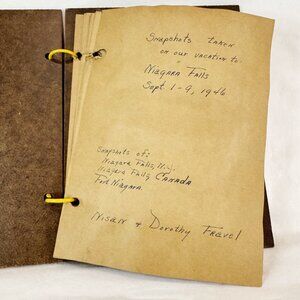 Snapshots taken
on our vacation to:
Niagara Falls
Sept. 1-9, 1946
Snapshots of:
Niagara Falls, N.Y.
Niagara Falls, Canada
Fort Niagara.
Nisan & Dorothy Fravel